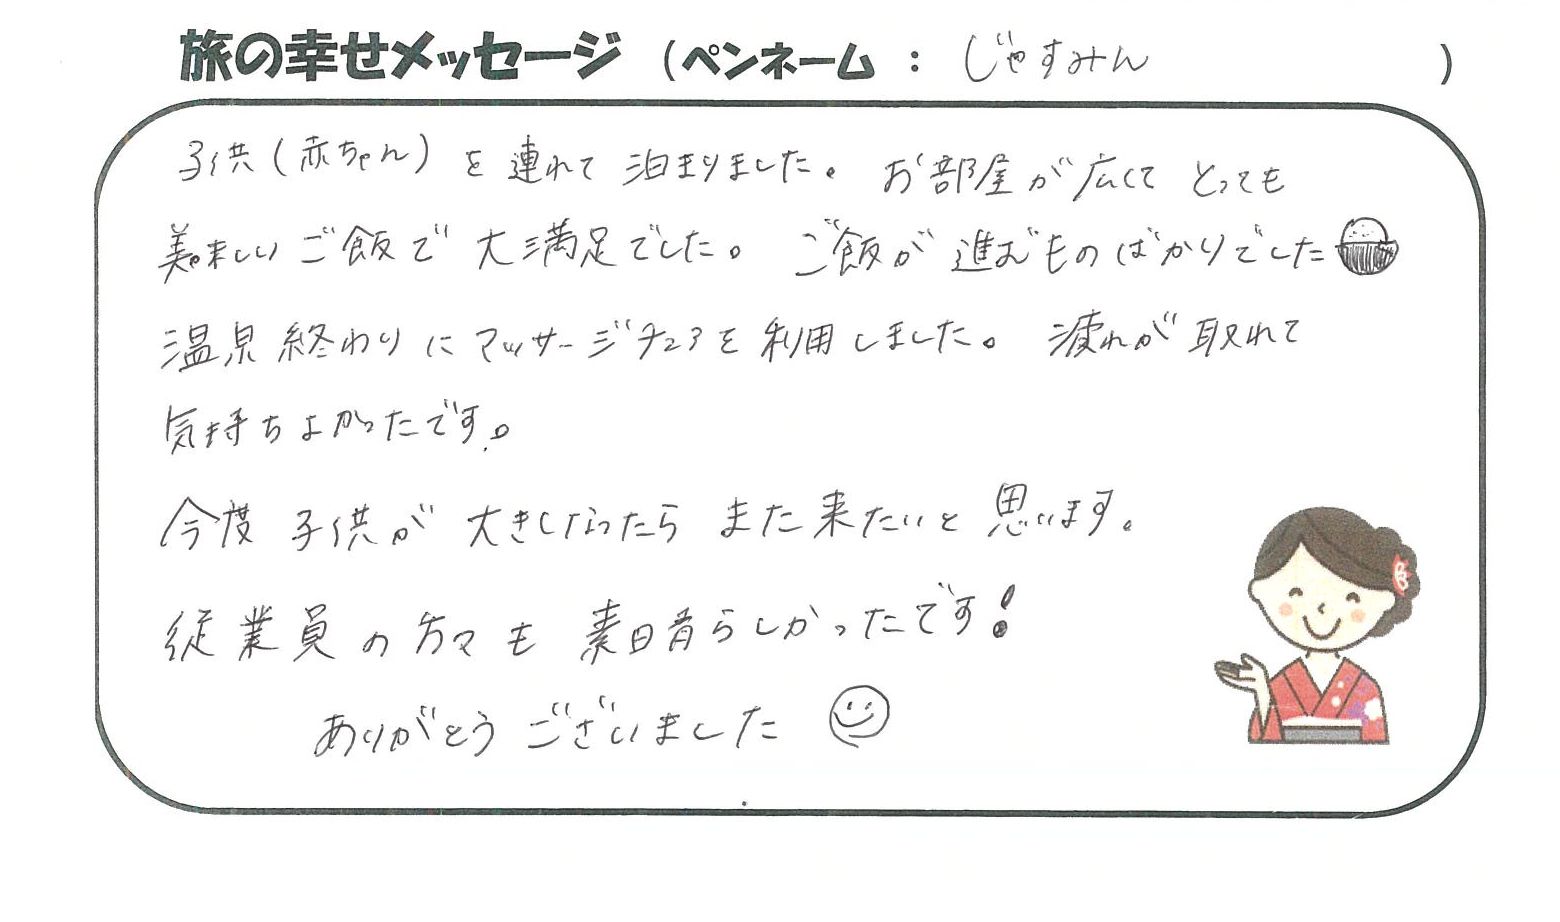 旅の幸せメッセージ (ペンネーム : じゃすみん )
子供(赤ちゃん)を連れて泊まりました。お部屋が広くてとっても
美味しいご飯で大満足でした。ご飯が進むものばかりでした
温泉終わりにマッサージチェアを利用しました。疲れが取れて
気持ちよかったです。
今度子供が大きくなったらまた来たいと思います。
従業員の方々も素晴らしかったです!
ありがとうございました